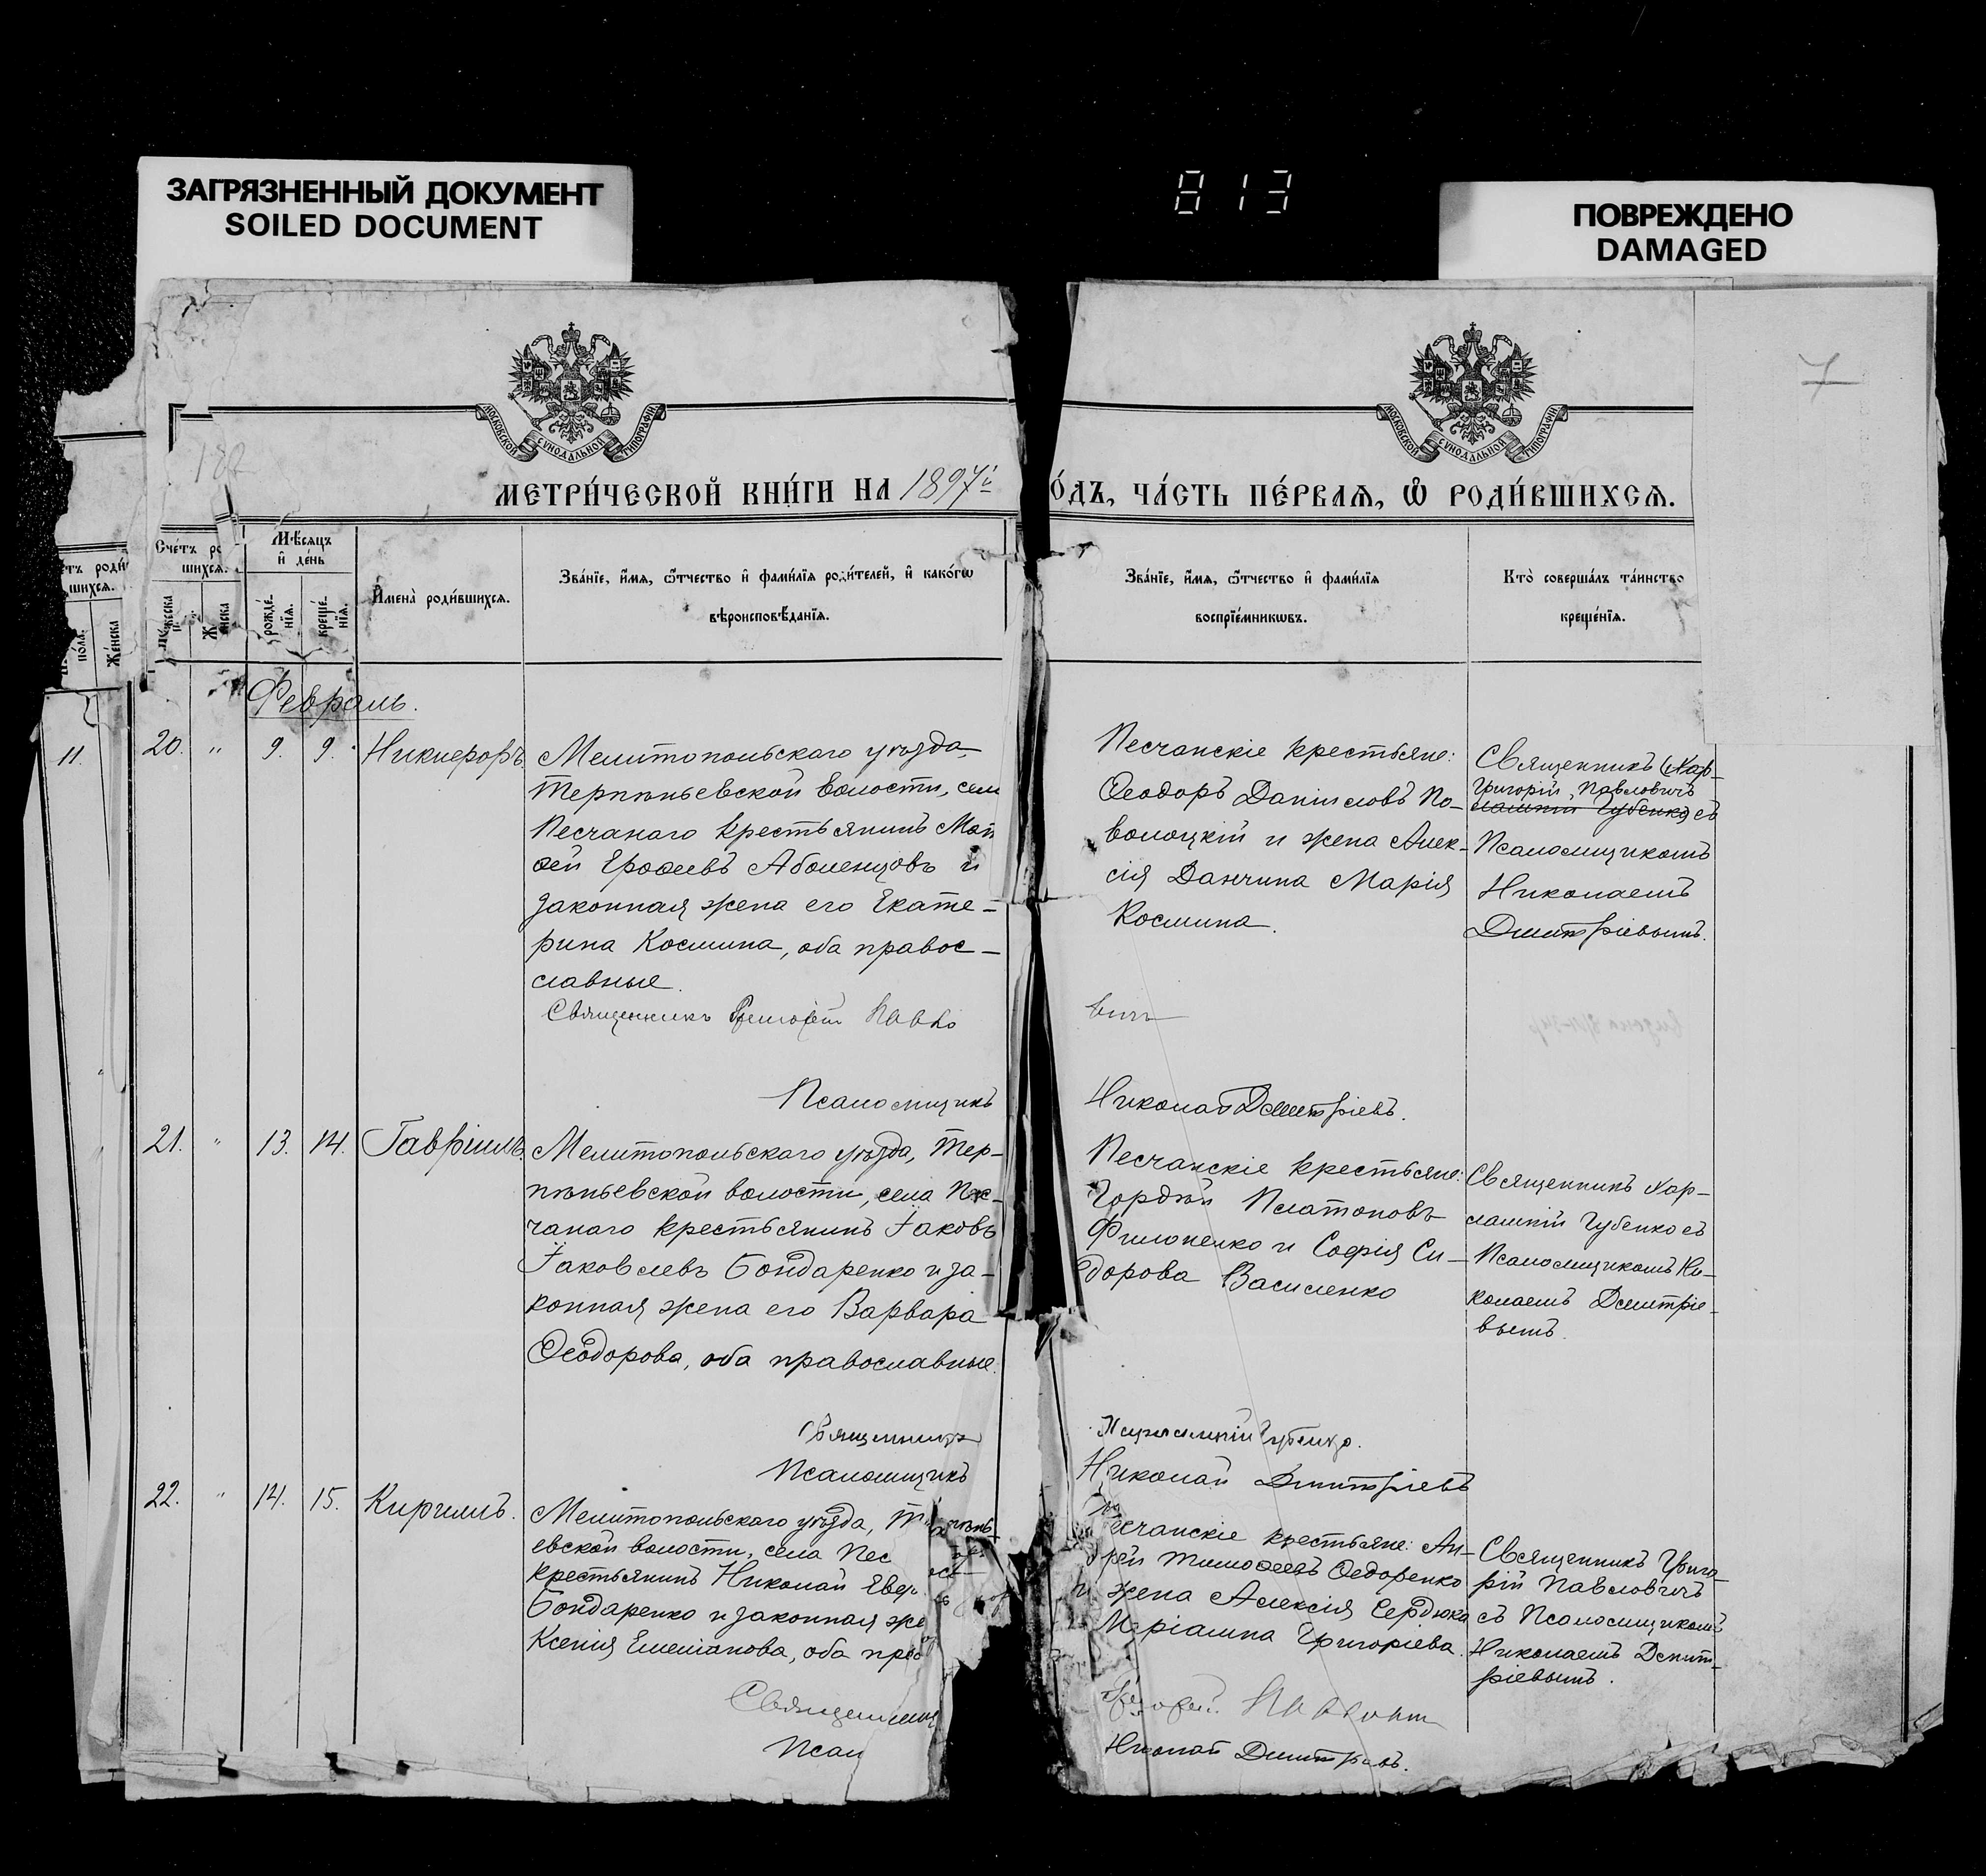 ЗАГРЯЗНЕННЫЙ ДОКУМЕНТ
SOILED DOCUMENT
813
ПОВРЕЖДЕНО
DAMAGED
МОСКОВСКОЙ СУНОДАЛЬНОЙ ТИПОГРАФІИ
МОСКОВСКОЙ СУНОДАЛЬНОЙ ТИПОГРАФІИ
7
МЕТРИ́ЧЕСКОЙ КНИ́ГИ НА 1897й
О́ДЪ, ЧА́СТЬ ПЕ́РВАѦ, Ѿ РОДИ́ВШИХСѦ.
Сче́тъ ро
шихсѧ.
Мѣ́сѧцъ
и҆ де́нь
рожде́нїѧ.
креще́нїѧ.
И҆мена̀ роди́вшихсѧ.
Зва́нїе, и҆́мѧ, ѻ҆́тчество и҆ фами́лїѧ роди́телей, и҆ како́гѡ
вѣроисповѣ́данїѧ.
Зва́нїе, и҆́мѧ, ѻ҆́тчество и҆ фами́лїѧ
воспрїе́мникѡвъ.
Кто̀ соверша́лъ та́инство
креще́нїѧ.
шихсѧ.
пола̀.
Же́нска
Февраль.
11.
20. " 9. 9. Никифоръ.
Мелитопольскаго уѣзда,
Терпѣньевской волости, села
Песчанаго крестьянинъ Мой
сей Ероѳеевъ Аболенцовъ и
законная жена его Екате-
рина Космина, оба правос-
славные.
Священникъ Григорій Павло
Псаломщикъ
Песчанскіе крестьяне:
Ѳеодоръ Даніиловъ По-
волоцкій и жена Алек-
сія Данчина Марія
Космина.
вичъ
Николай Дмитріевъ.
Священникъ (Хар-
Григорій Павловичъ
лампій Губенко) съ
Псаломщикомъ
Николаемъ
Дмитріевымъ.
21. " 13. 14. Гавріилъ.
Мелитопольскаго уѣзда, Тер-
пѣньевской волости, села Пес-
чанаго крестьянинъ Іаковъ
Іаковлевъ Бондаренко и за-
конная жена его Варвара
Ѳеодорова, оба православные.
Священникъ
Псаломщикъ
Песчанскіе крестьяне:
Гордѣй Платоновъ
Филоненко и Софія Си-
дорова Василенко
Харлампій Губенко.
Николай Дмитріевъ
Священникъ Хар-
лампій Губенко съ
Псаломщикомъ Ни-
колаемъ Дмитріе-
вымъ.
22. " 14. 15. Кириллъ.
Мелитопольскаго уѣзда, Т пѣнь
евской волости, села Пес
крестьянинъ Николай
Бондаренко и законная же
Ксенія Емеліанова, оба прав
Священник
Псал
Песчанскіе крестьяне: Ан-
дрей Тимоѳеевъ Ѳедоренко
и жена Алексія Сердюка
Маріамна Григоріева.
Григорій Павлович
Николай Дмитріевъ.
Священникъ Григо-
рій Павловичъ
съ Псаломщикомъ
Николаемъ Дмит-
ріевымъ.